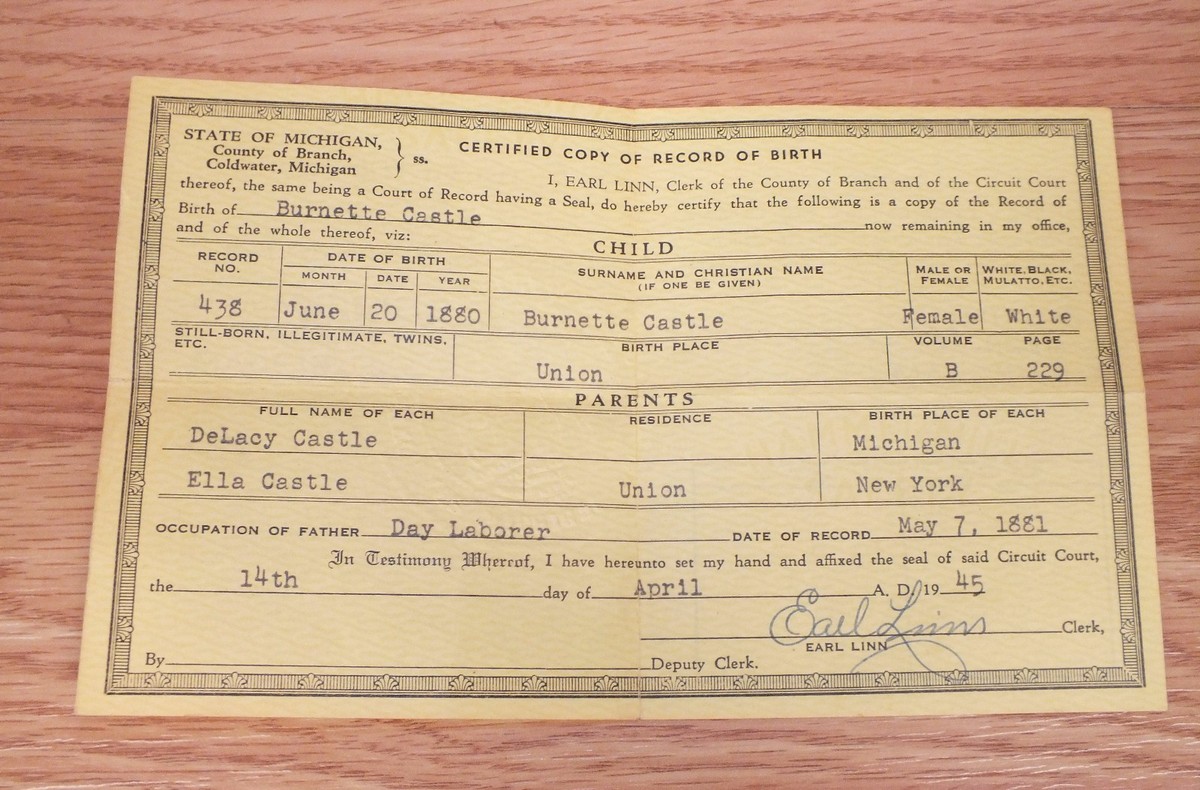 STATE OF MICHIGAN,
County of Branch,
Coldwater, Michigan
} ss.
CERTIFIED COPY OF RECORD OF BIRTH
I, EARL LINN, Clerk of the County of Branch and of the Circuit Court
thereof, the same being a Court of Record having a Seal, do hereby certify that the following is a copy of the Record of
Birth of Burnette Castle now remaining in my office,
and of the whole thereof, viz:
CHILD
RECORD NO. DATE OF BIRTH SURNAME AND CHRISTIAN NAME MALE OR FEMALE WHITE, BLACK, MULATTO, ETC.
MONTH DATE YEAR (IF ONE BE GIVEN)
438 June 20 1880 Burnette Castle Female White
STILL-BORN, ILLEGITIMATE, TWINS, ETC. BIRTH PLACE VOLUME PAGE
Union B 229
PARENTS
FULL NAME OF EACH RESIDENCE BIRTH PLACE OF EACH
DeLacy Castle Michigan
Ella Castle Union New York
OCCUPATION OF FATHER Day Laborer DATE OF RECORD May 7, 1881
In Testimony Whereof, I have hereunto set my hand and affixed the seal of said Circuit Court,
the 14th day of April A. D. 19 45
Earl Linn Clerk,
EARL LINN
By Deputy Clerk.